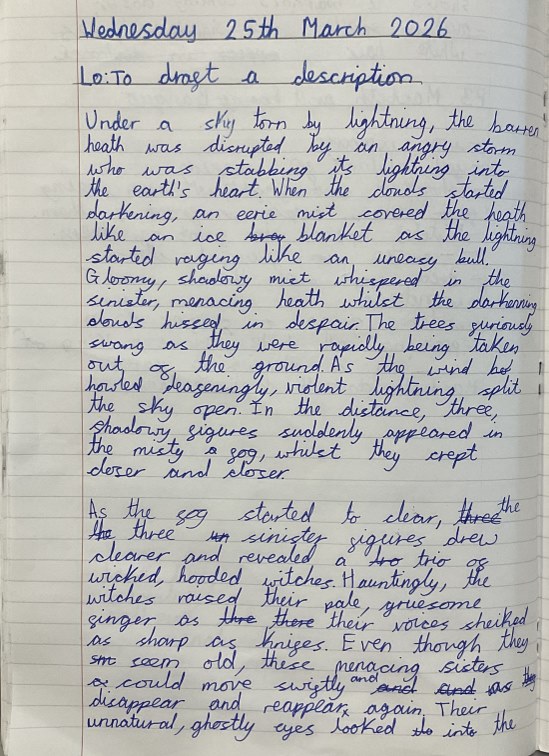 Wednesday 25th March 2026
Lo: To draft a description
Under a sky torn by lightning, the barren
heath was disrupted by an angry storm
who was stabbing its lightning into
the earth's heart. When the clouds started
darkening, an eerie mist covered the heath
like an ice blanket as the lightning
started raging like an uneasy bull.
Gloomy, shadowy mist whispered in the
sinister, menacing heath whilst the darkenning
clouds hissed in despair. The trees furiously
swang as they were rapidly being taken
out of the ground. As the wind
howled deafeningly, violent lightning split
the sky open. In the distance, three,
shadowy figures suddenly appeared in
the misty fog, whilst they crept
closer and closer.
As the fog started to clear, three the
the three sinister figures drew
clearer and revealed a tro trio of
wicked, hooded witches. Hauntingly, the
witches raised their pale, gruesome
finger as thre there their voices sheiked,
as sharp as knifes. Even though they
sm seem old, these menacing sisters
could move swiftly and and and as they
disappear and reappear again. Their
unnatural, ghostly eyes looked into the